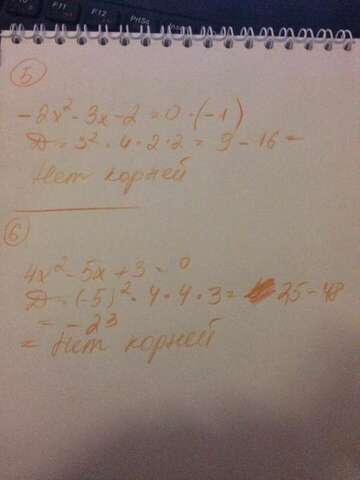 F11
F12
PrtSc
5
-2x²-3x-2=0·(-1)
D=3²·4·2·2=9-16=
Нет корней
6
4x²-5x+3=0
D=(-5)²·4·4·3=25-48
=-23
=Нет корней